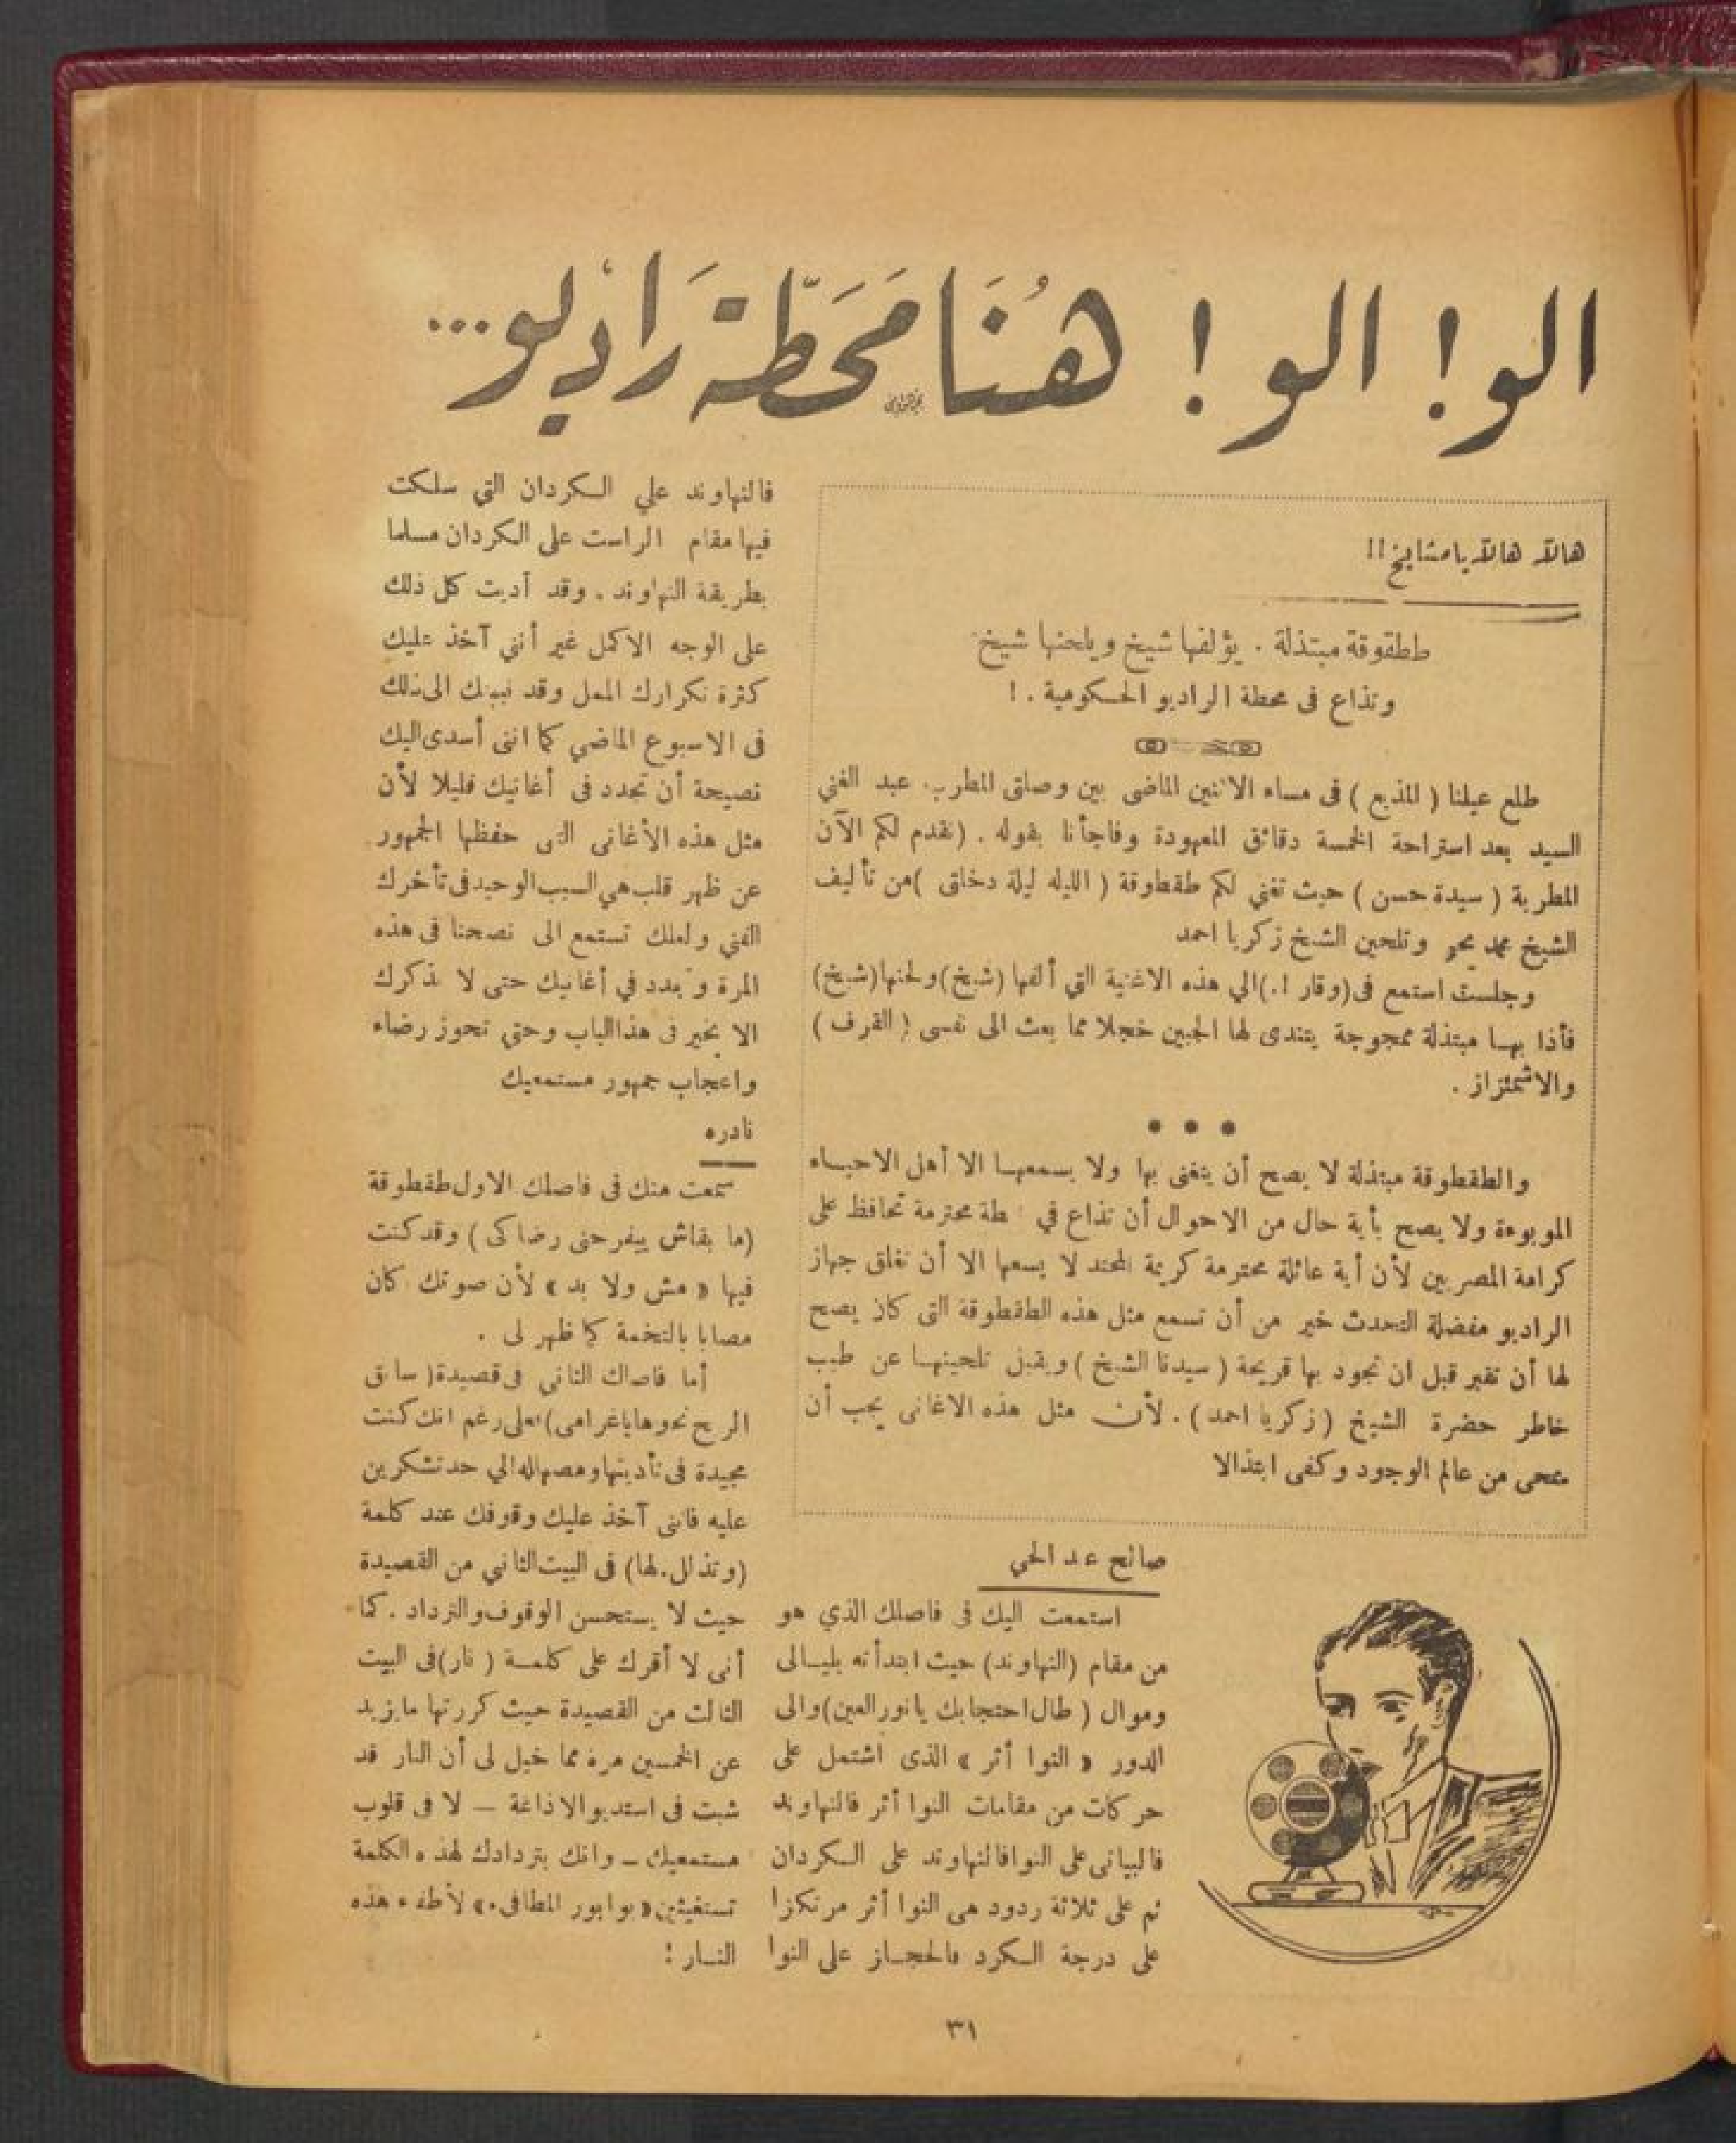 الو! الو! هُنَا مَحَطّة رَاديُو...
هالله هالله يا مشايخ !!
طقطوقة مبتذلة . يؤلفها شيخ ويلحنها شيخ
وتذاع فى محطة الراديو الحكومية . !
طلع علينا ( المذيع ) فى مساء الاثنين الماضى بين وصلتى المطرب عبد الغني
السيد بعد استراحة الخمسة دقائق المعهودة وفاجأنا بقوله . (نقدم لكم الآن
المطربة ( سيدة حسن ) حيث تغني لكم طقطوقة ( الليله ليلة دخلتى )من تأليف
الشيخ محمد وتلحين الشيخ زكريا احمد
وجلست استمع فى(وقار !.)الي هذه الاغنية التي ألفها (شيخ)ولحنها(شيخ)
فأذا بها مبتذلة ممجوجة يتندى لها الجبين خجلا مما بعث الى نفسى ( القرف )
والاشمئزاز .
والطقطوقة مبتذلة لا يصح أن يتغنى بها ولا يسمعها الا أهل الاحياء
الموبوءة ولا يصح بأية حال من الاحوال أن تذاع في طة محترمة تحافظ على
كرامة المصريين لأن أية عائلة محترمة كريمة المحتد لا يسعها الا أن تغلق جهاز
الراديو مفضلة التحدث خير من أن تسمع مثل هذه الطقطوقة التى كان يصح
لها أن تقبر قبل ان تجود بها قريحة ( سيدنا الشيخ ) ويقبل تلحينها عن طيب
خاطر حضرة الشيخ ( زكريا احمد ) . لأن مثل هذه الاغانى يجب أن
تمحى من عالم الوجود وكفى ابتذالا
صالح عبد الحي
استمعت اليك فى فاصلك الذي هو
من مقام (النهاوند) حيث ابتدأته بليالى
وموال ( طال احتجابك يا نور العين)والى
الدور « النوا أثر » الذى اشتمل على
حركات من مقامات النوا أثر فالنهاوند
فالبياتى على النوا فالنهاوند على الكردان
ثم على ثلاثة ردود هى النوا أثر مرتكزا
على درجة الكرد فالحجاز على النوا
فالنهاوند علي الكردان التي سلكت
فيها مقام الراست على الكردان مسلما
بطريقة النهاوند . وقد أديت كل ذلك
على الوجه الاكمل غير أنني آخذ عليك
كثرة تكرارك الممل وقد نبهتك الى ذلك
فى الاسبوع الماضي كما اننى أسدى اليك
نصيحة أن تجدد فى أغانيك قليلا لأن
مثل هذه الأغانى التى حفظها الجمهور
عن ظهر قلب هي السبب الوحيد فى تأخرك
الفني ولعلك تستمع الى نصحنا فى هذه
المرة وتجدد في أغانيك حتى لا نذكرك
الا بخير فى هذا الباب وحتي تحوز رضاء
واعجاب جمهور مستمعيك
نادره
سمعت منك فى فاصلك الاول طقطوقة
(ما بقاش بيفرحنى رضاكى ) وقد كنت
فيها « مش ولا بد » لأن صوتك كان
مصابا بالتخمة كما ظهر لى .
أما فاصلك الثانى فى قصيدة( سابق
الريح نحوها ياغرامى)فعلى رغم انك كنت
مجيدة فى تأديتها الي حد تشكرين
عليه فاننى آخذ عليك وقوفك عند كلمة
(وتذلل.لها) فى البيت الثاني من القصيدة
حيث لا يستحسن الوقوف والترداد . كما
أنى لا أقرك على كلمة ( نار)فى البيت
الثالث من القصيدة حيث كررتها مايزيد
عن الخمسين مرة مما خيل لى أن النار قد
شبت فى استديو الاذاعة — لا فى قلوب
مستمعيك — وانك بتردادك لهذه الكلمة
تستغيثين« بوابور المطافىء» لأطفاء هذه
النار !
٣١